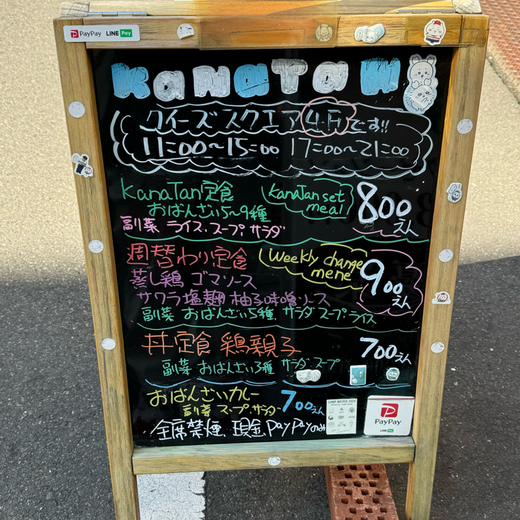 PayPay LINE Pay
KANATAN
クイーズスクエア4Fです!!
11:00~15:00 17:00~21:00
KanaTan定食
KanaTan set meal
800えん
おばんざい5~9種
副菜 ライス、スープ、サラダ
週替わり定食
Weekly change mene
900えん
蒸し鶏 ゴマソース
サワラ塩麹 柚子味噌ソース
副菜 おばんざい5種 サラダ スープ ライス
丼定食 鶏親子
700えん
副菜 おばんざい3種 サラダ スープ
おばんざいカレー
700えん
副菜 スープ サラダ
全席禁煙 現金、PayPayのみ
PayPay
LINE Pay